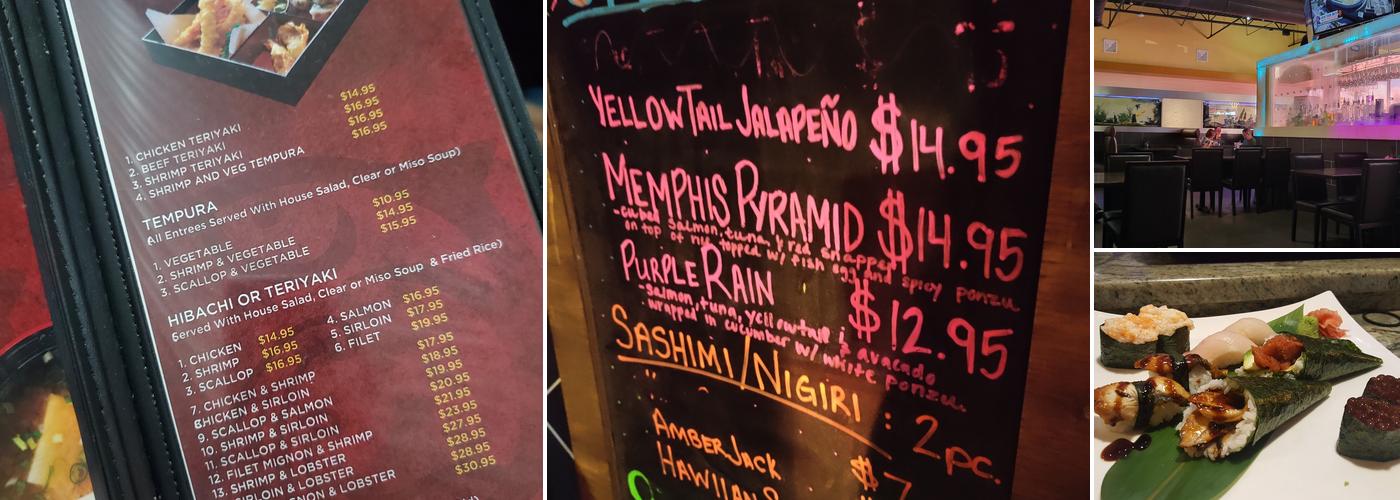 1. CHICKEN TERIYAKI $14.95
2. BEEF TERIYAKI $16.95
3. SHRIMP TERIYAKI $16.95
4. SHRIMP AND VEG TEMPURA $16.95
TEMPURA
All Entrees Served With House Salad, Clear or Miso Soup)
1. VEGETABLE $10.95
2. SHRIMP & VEGETABLE $14.95
3. SCALLOP & VEGETABLE $15.95
HIBACHI OR TERIYAKI
Served With House Salad, Clear or Miso Soup & Fried Rice)
1. CHICKEN $14.95 4. SALMON $16.95
2. SHRIMP $16.95 5. SIRLOIN $17.95
3. SCALLOP $16.95 6. FILET $19.95
7. CHICKEN & SHRIMP $17.95
8. CHICKEN & SIRLOIN $18.95
9. SCALLOP & SALMON $19.95
10. SHRIMP & SIRLOIN $20.95
11. SCALLOP & SIRLOIN $23.95
12. FILET MIGNON & SHRIMP $27.95
13. SHRIMP & LOBSTER $28.95
SIRLOIN & LOBSTER $28.95
& LOBSTER $30.95
YELLOWTAIL JALAPEÑO $14.95
MEMPHIS PYRAMID $14.95
-cubed salmon, tuna, & red snapper
on top of rice topped w/ fish egg and spicy ponzu
PURPLE RAIN $12.95
-salmon, tuna, yellowtail & avacado
wrapped in cucumber w/ white ponzu
SASHIMI/NIGIRI : 2 pc.
AMBERJACK $7